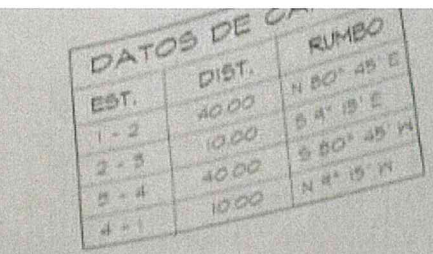 DATOS DE
EST. DIST. RUMBO
1 - 2 40.00 N 80° 45' E
2 - 3 10.00 S 4° 15' E
3 - 4 40.00 S 80° 45' W
4 - 1 10.00 N 4° 15' W